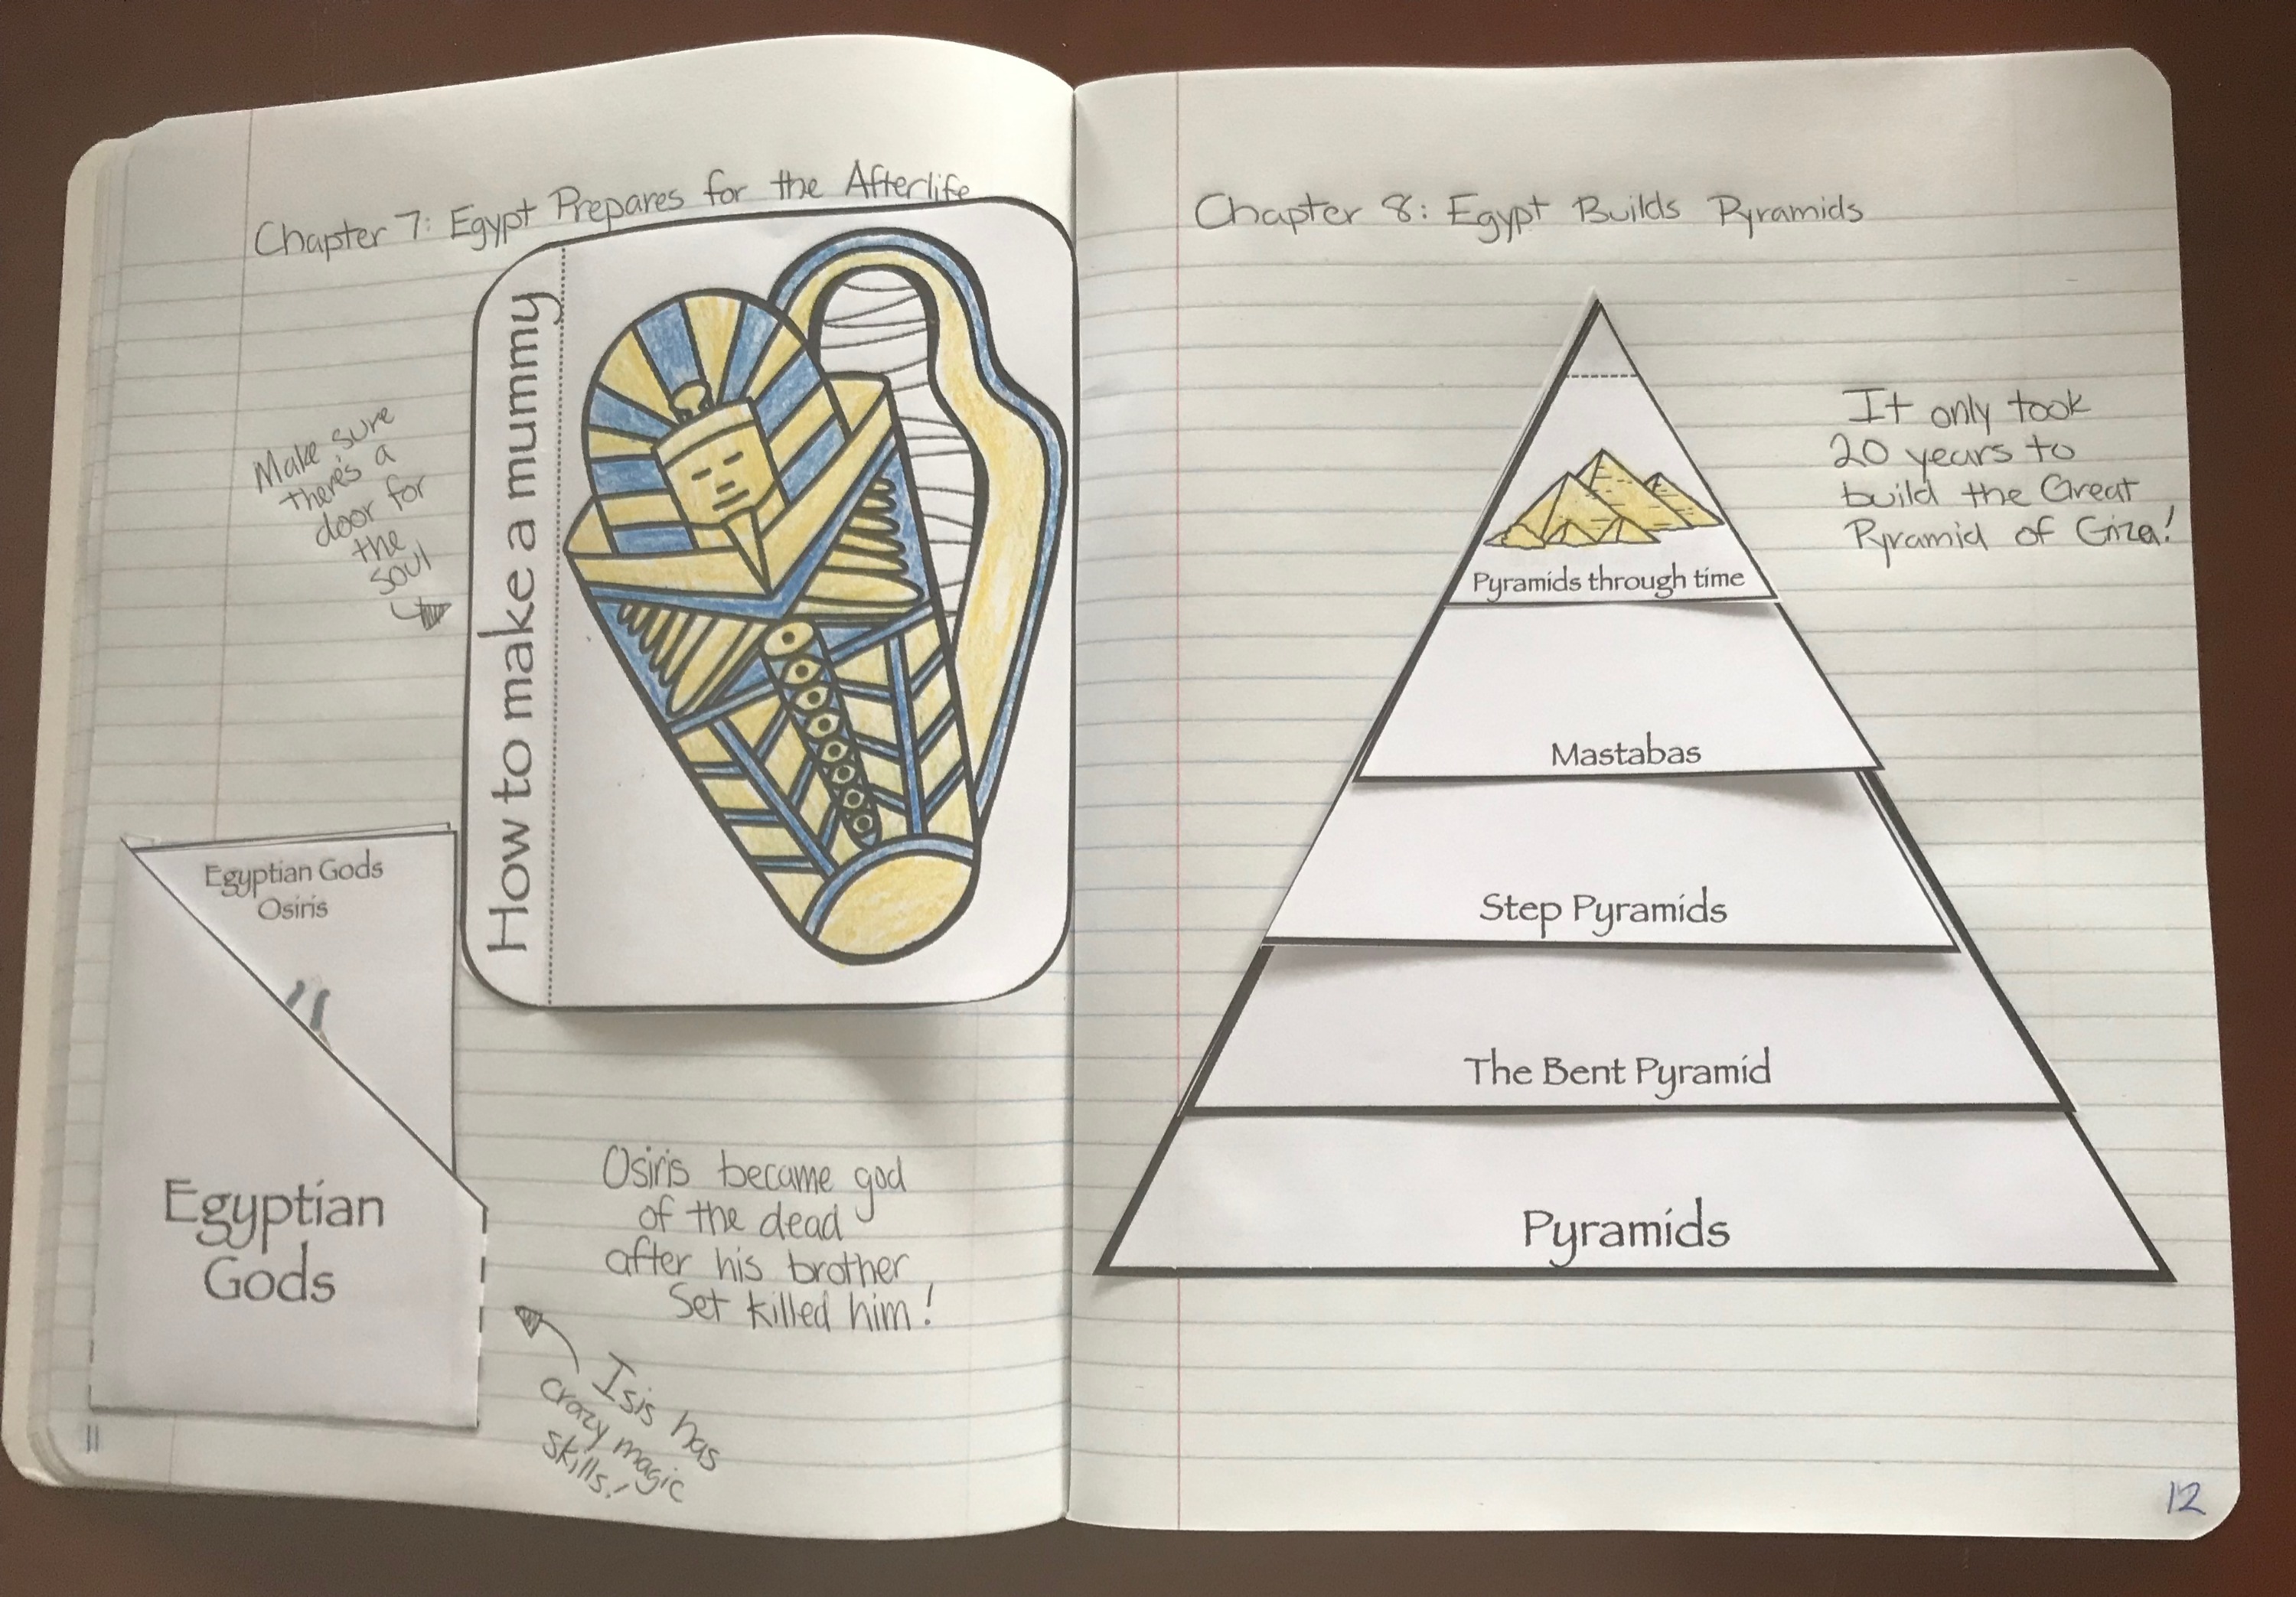 Chapter 7: Egypt Prepares for the Afterlife
How to make a mummy
Make sure
there's a
door for
the
soul
Egyptian Gods
Osiris
Egyptian
Gods
Osiris became god
of the dead
after his brother
Set killed him!
Isis has
crazy magic
skills!
11
Chapter 8: Egypt Builds Pyramids
It only took
20 years to
build the Great
Pyramid of Giza!
Pyramids through time
Mastabas
Step Pyramids
The Bent Pyramid
Pyramids
12